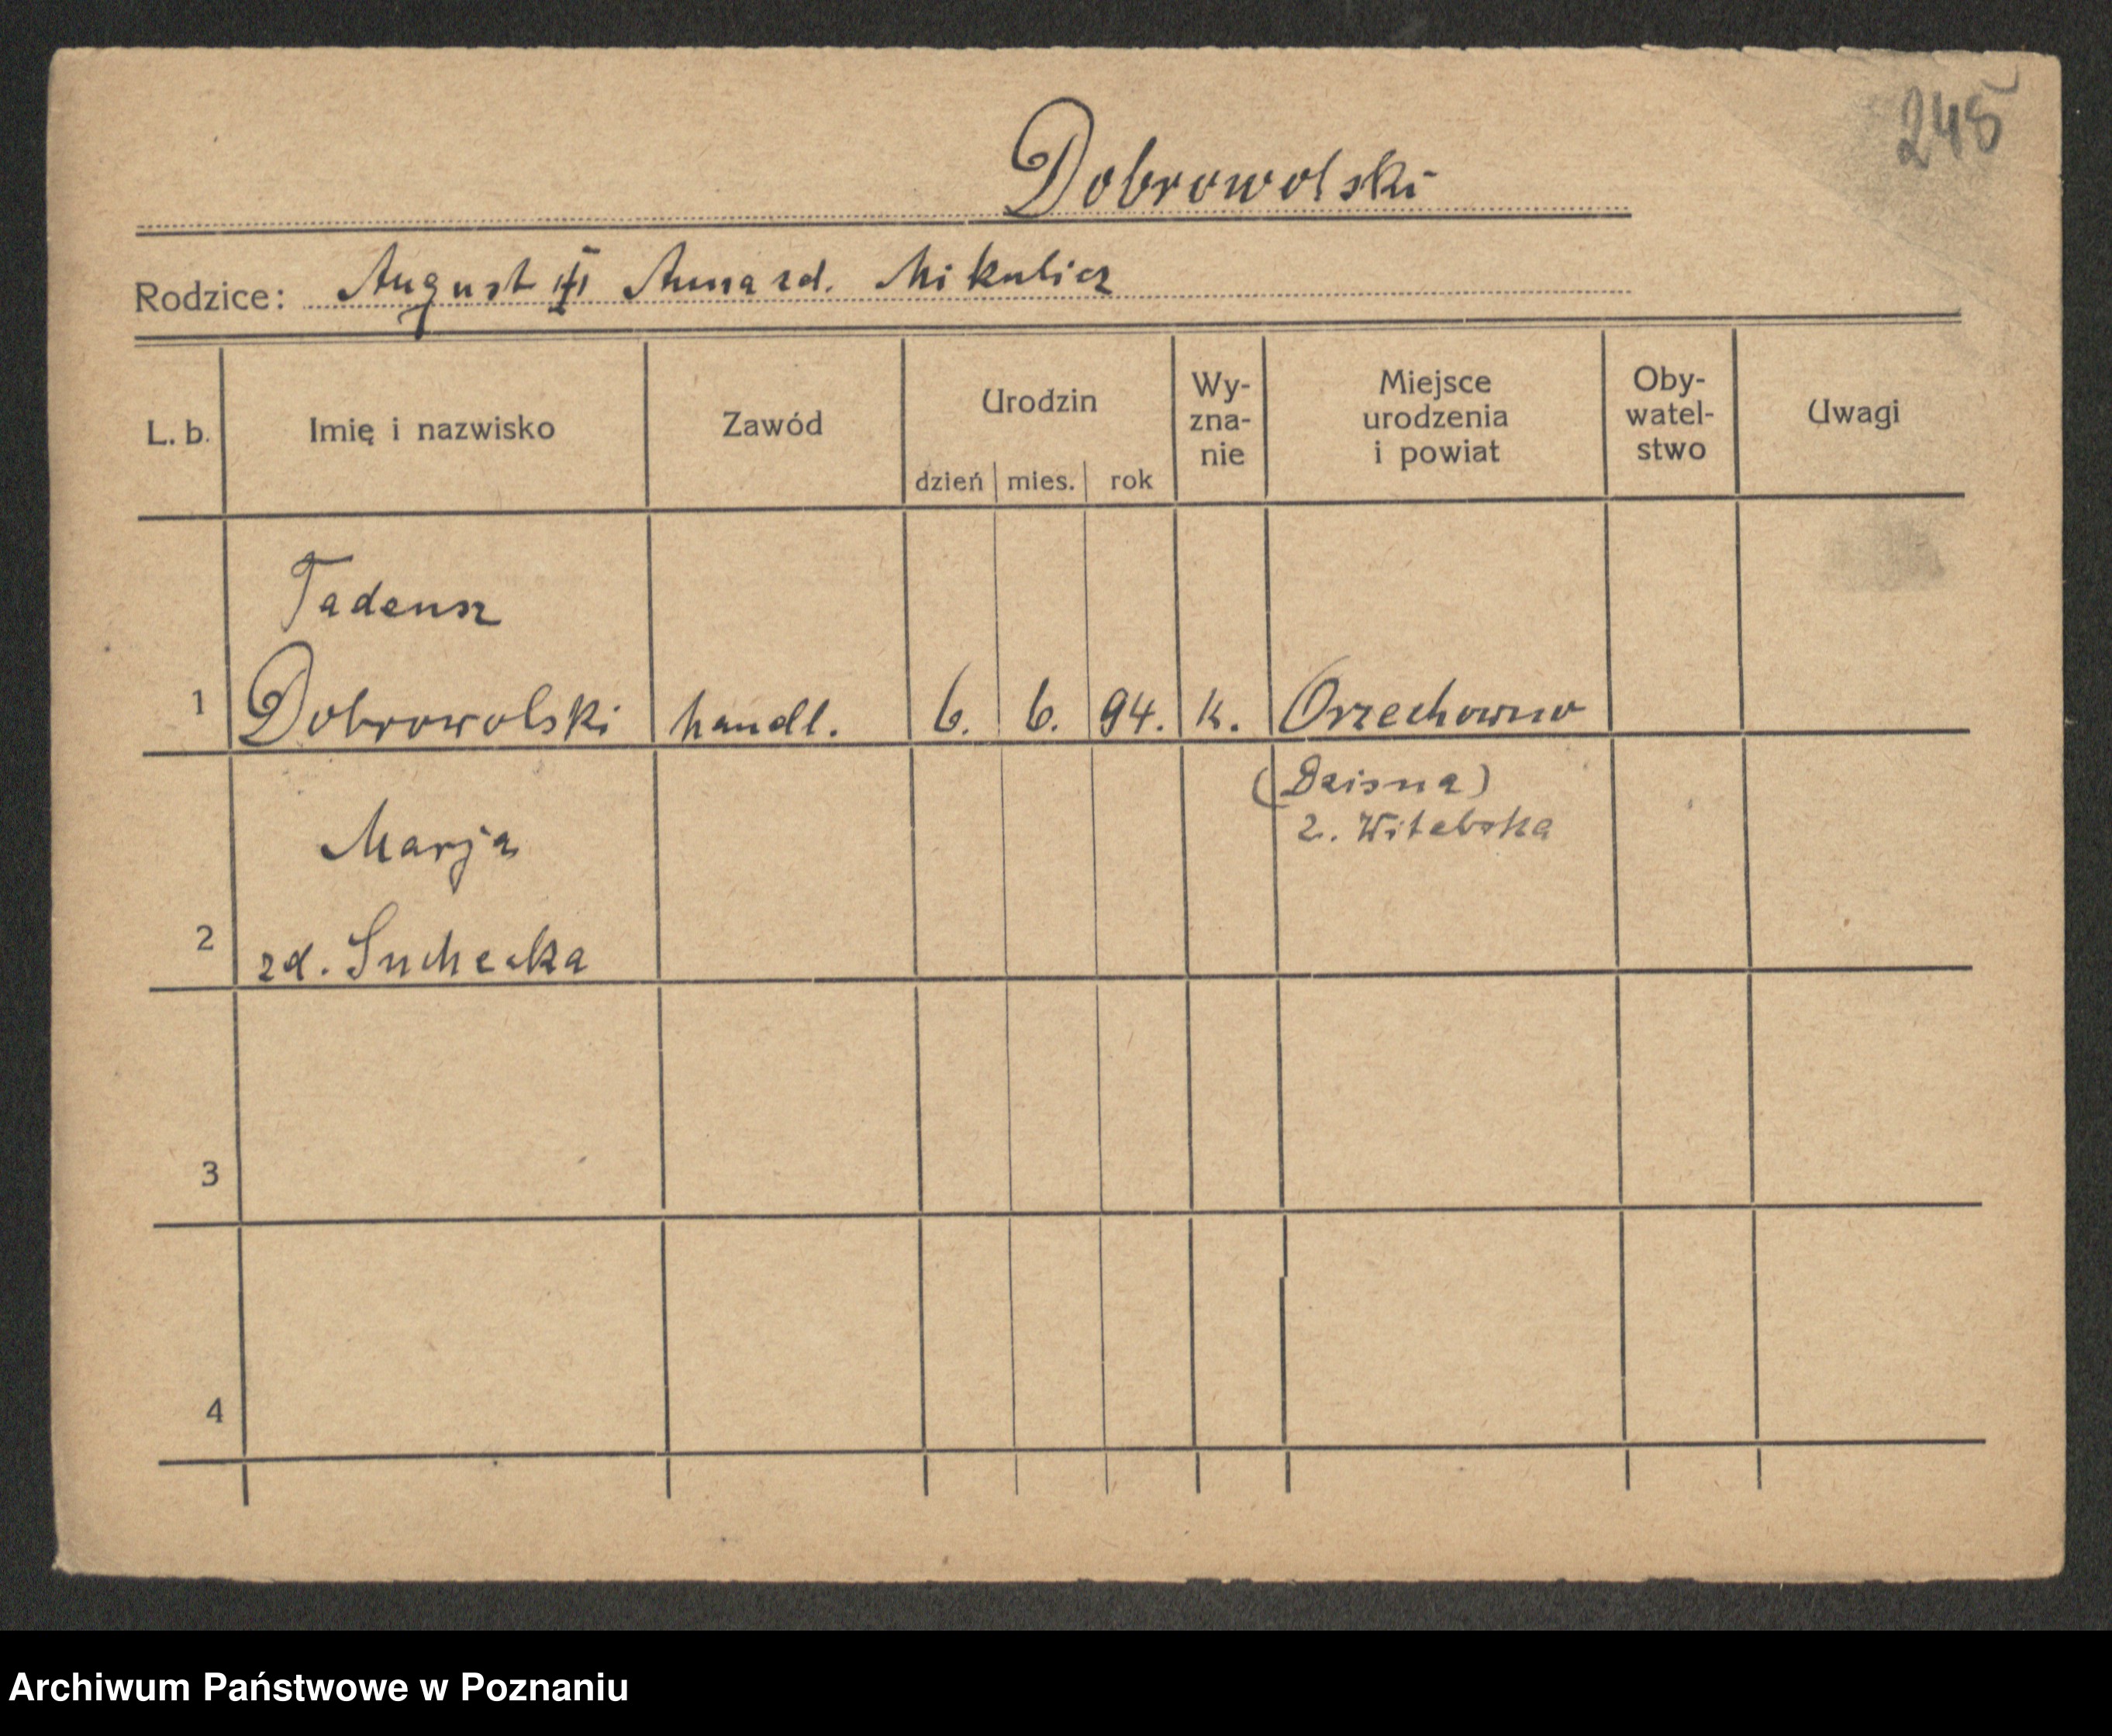 245
Dobrowolski
Rodzice: August i Anna zd. Mikulicz
L. b. Imię i nazwisko Zawód Urodzin dzień mies. rok Wy- zna- nie Miejsce urodzenia i powiat Oby- watel- stwo Uwagi
Tadeusz
1 Dobrowolski handl. 6. 6. 94. k. Orzechowno
(Dzisna)
z. Witebska
Marja
2 zd. Suchecka
3
4
Archiwum Państwowe w Poznaniu